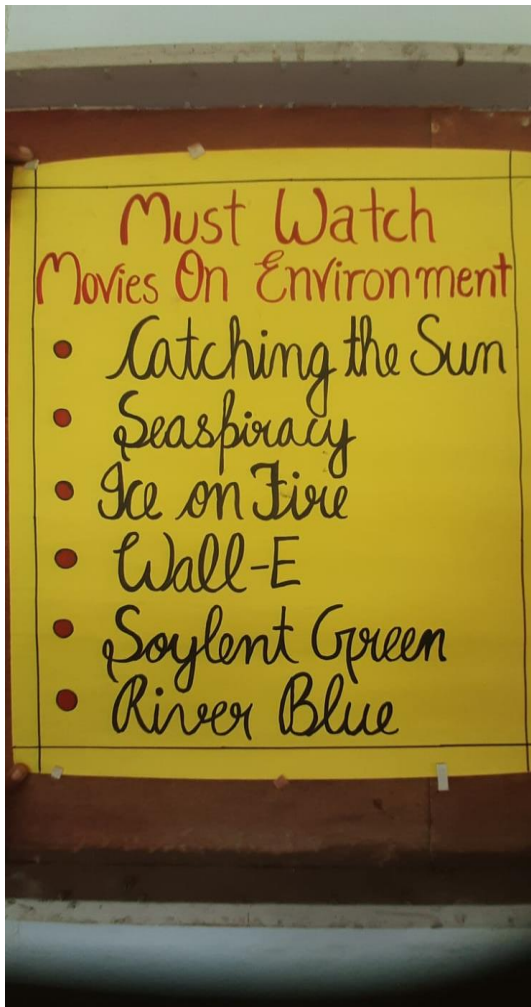 Must Watch
Movies On Environment
• Catching the Sun
• Seaspiracy
• Ice on Fire
• Wall-E
• Soylent Green
• River Blue